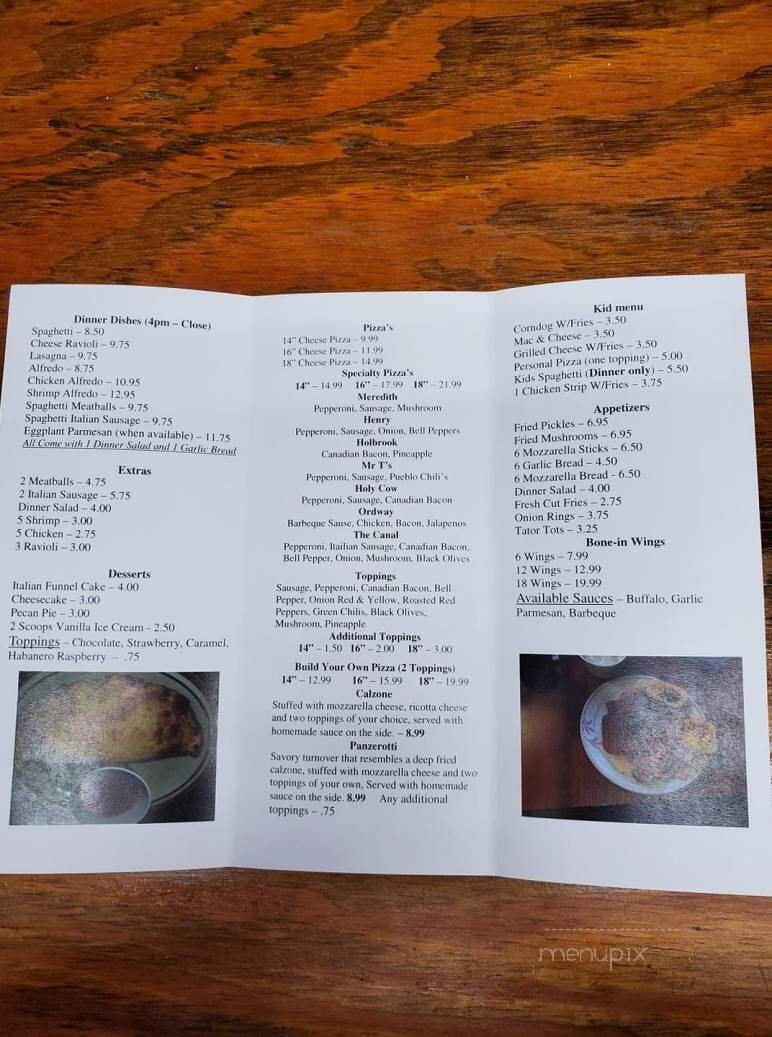 Dinner Dishes (4pm – Close)
Spaghetti – 8.50
Cheese Ravioli – 9.75
Lasagna – 9.75
Alfredo – 8.75
Chicken Alfredo – 10.95
Shrimp Alfredo – 12.95
Spaghetti Meatballs – 9.75
Spaghetti Italian Sausage – 9.75
Eggplant Parmesan (when available) – 11.75
All Come with 1 Dinner Salad and 1 Garlic Bread
Extras
2 Meatballs – 4.75
2 Italian Sausage – 5.75
Dinner Salad – 4.00
5 Shrimp – 3.00
5 Chicken – 2.75
3 Ravioli – 3.00
Desserts
Italian Funnel Cake – 4.00
Cheesecake – 3.00
Pecan Pie – 3.00
2 Scoops Vanilla Ice Cream - 2.50
Toppings – Chocolate, Strawberry, Caramel,
Habanero Raspberry – .75
Pizza's
14" Cheese Pizza – 9.99
16" Cheese Pizza – 11.99
18" Cheese Pizza – 14.99
Specialty Pizza's
14" – 14.99 16" – 17.99 18" – 21.99
Meredith
Pepperoni, Sausage, Mushroom
Henry
Pepperoni, Sausage, Onion, Bell Peppers
Holbrook
Canadian Bacon, Pineapple
Mr T's
Pepperoni, Sausage, Pueblo Chili's
Holy Cow
Pepperoni, Sausage, Canadian Bacon
Ordway
Barbeque Sause, Chicken, Bacon, Jalapenos
The Canal
Pepperoni, Itailian Sausage, Canadian Bacon,
Bell Pepper, Onion, Mushroom, Black Olives
Toppings
Sausage, Pepperoni, Canadian Bacon, Bell
Pepper, Onion Red & Yellow, Roasted Red
Peppers, Green Chilis, Black Olives,
Mushroom, Pineapple
Additional Toppings
14" – 1.50 16" – 2.00 18" – 3.00
Build Your Own Pizza (2 Toppings)
14" – 12.99 16" – 15.99 18" – 19.99
Calzone
Stuffed with mozzarella cheese, ricotta cheese
and two toppings of your choice, served with
homemade sauce on the side. – 8.99
Panzerotti
Savory turnover that resembles a deep fried
calzone, stuffed with mozzarella cheese and two
toppings of your own, Served with homemade
sauce on the side. 8.99 Any additional
toppings – .75
Kid menu
Corndog W/Fries – 3.50
Mac & Cheese – 3.50
Grilled Cheese W/Fries – 3.50
Personal Pizza (one topping) – 5.00
Kids Spaghetti (Dinner only) – 5.50
1 Chicken Strip W/Fries – 3.75
Appetizers
Fried Pickles – 6.95
Fried Mushrooms – 6.95
6 Mozzarella Sticks – 6.50
6 Garlic Bread – 4.50
6 Mozzarella Bread - 6.50
Dinner Salad – 4.00
Fresh Cut Fries – 2.75
Onion Rings – 3.75
Tator Tots – 3.25
Bone-in Wings
6 Wings – 7.99
12 Wings – 12.99
18 Wings – 19.99
Available Sauces – Buffalo, Garlic
Parmesan, Barbeque
menupix